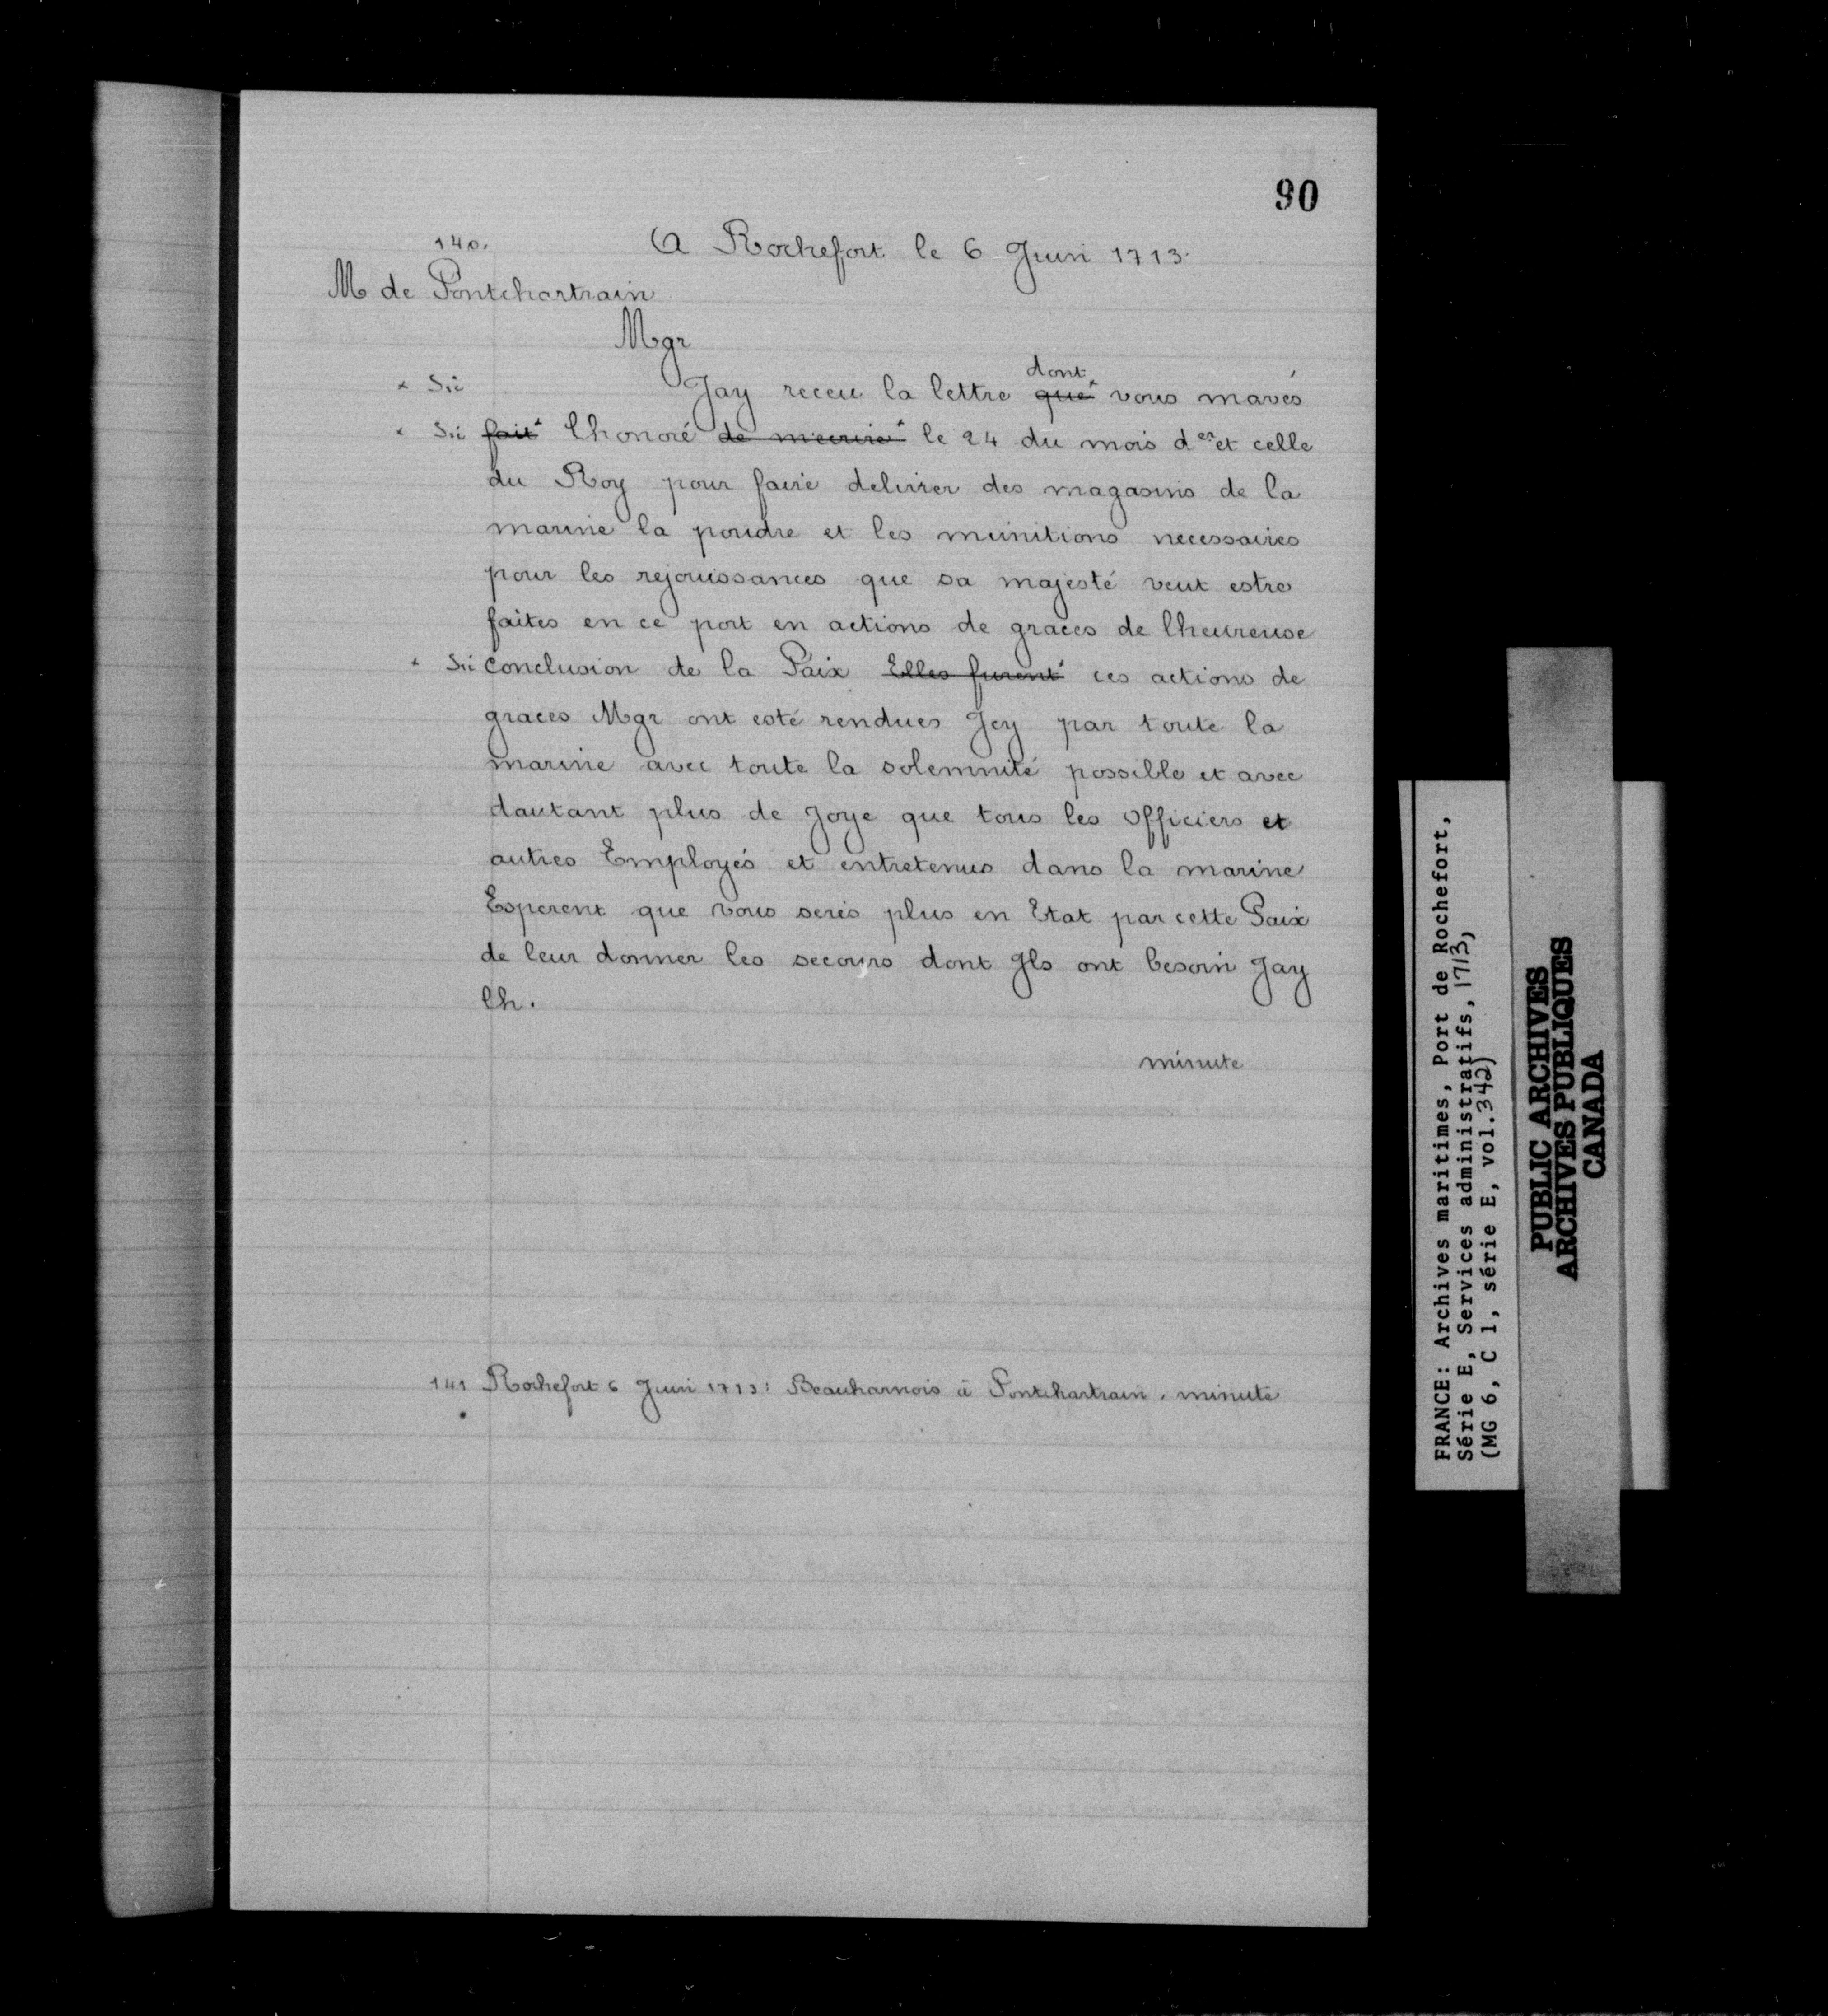 90
140. A Rochefort le 6 Juin 1713.
M de Pontchartrain
Mgr
x Sic Jay receu la lettre dont ~~que~~x vous mavés
x Sic ~~fait~~x lhonoré ~~de mecrire~~x le 24 du mois d^er et celle
du Roy pour faire delivrer des magasins de la
marine la poudre et les munitions necessaires
pour les rejouissances que sa majesté veut estre
faites en ce port en actions de graces de lheureuse
x Sic conclusion de la Paix ~~Elles furent~~x ces actions de
graces Mgr ont esté rendues Jcy par toute la
marine avec toute la solemnité possible et avec
dautant plus de Joye que tous les officiers et
autres Employés et entretenus dans la marine
Esperent que vous serés plus en Etat par cette Paix
de leur donner les secours dont Jls ont besoin Jay
lh.
minute
141 Rochefort 6 Juin 1713: Beauharnois à Pontchartrain. minute
FRANCE: Archives maritimes, Port de Rochefort,
Série E, Services administratifs, 1713,
(MG 6, C 1, série E, vol.342)
PUBLIC ARCHIVES
ARCHIVES PUBLIQUES
CANADA